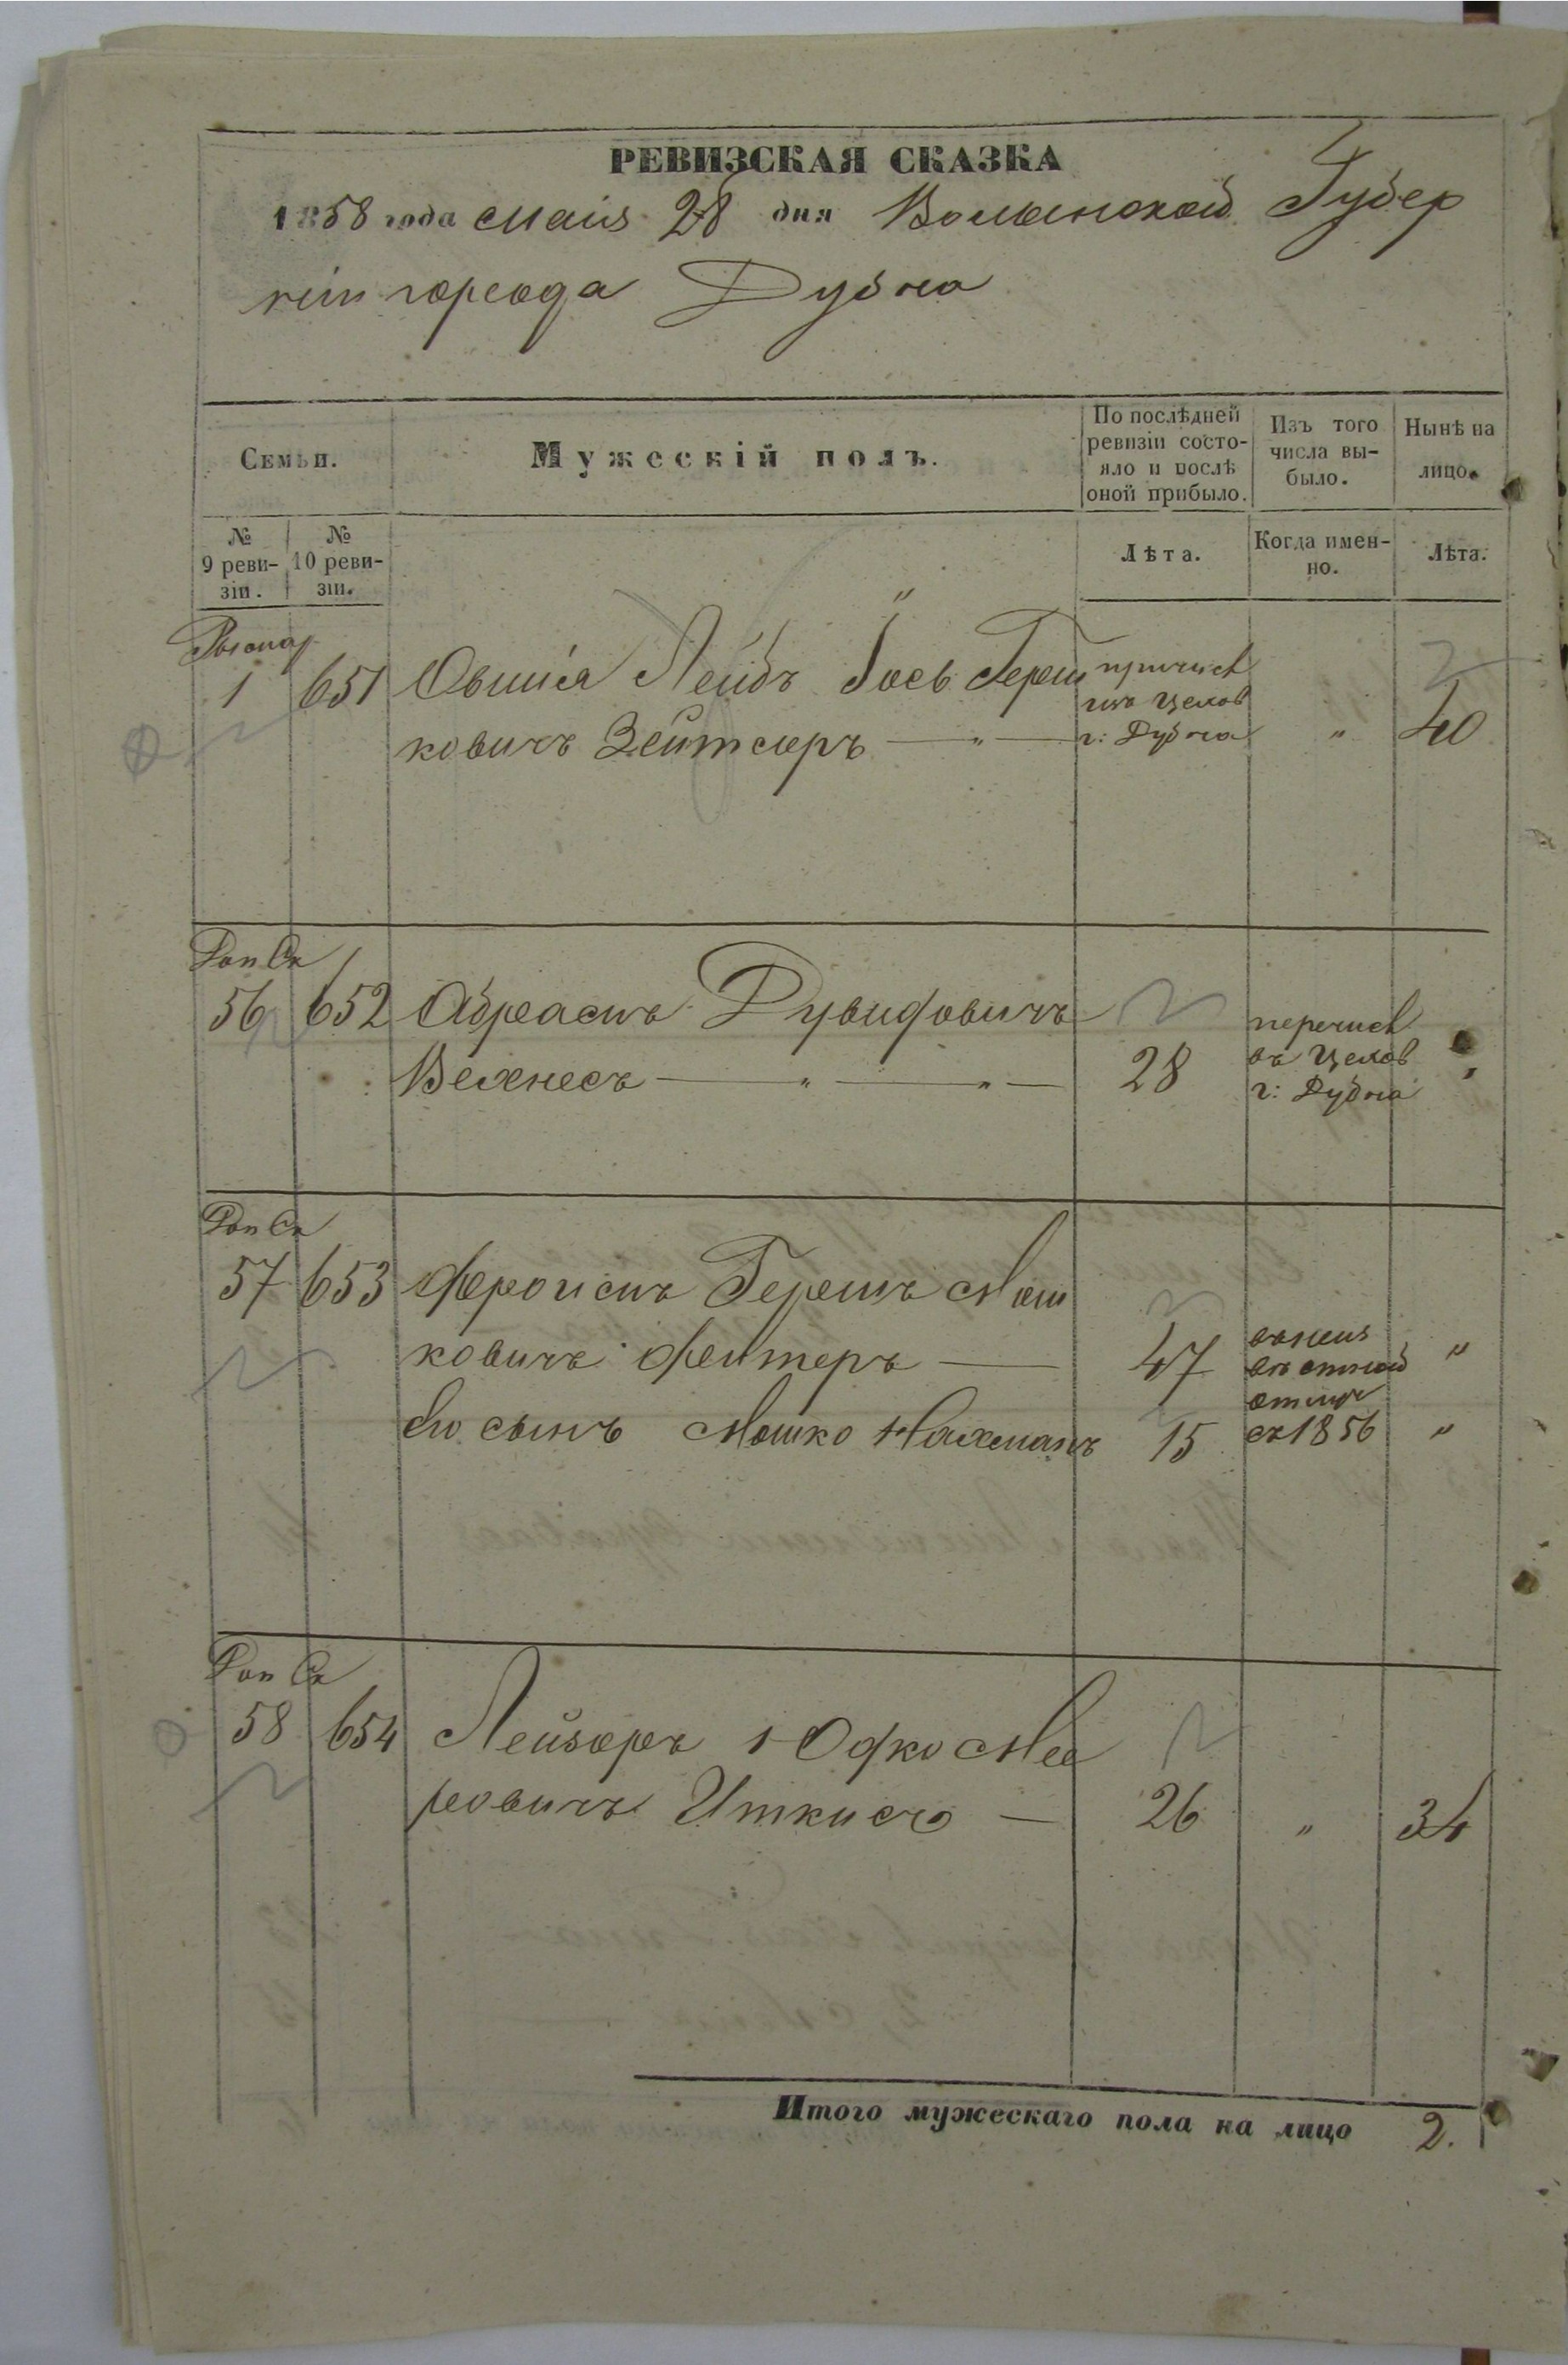 РЕВИЗСКАЯ СКАЗКА
1858 года Маія 28 дня Волынской Губер
ніи города Дубна
Семьи.
Мужескій полъ.
По послѣдней ревизіи состо-
яло и послѣ
оной прибыло.
Изъ того
числа вы-
было.
Нынѣ на
лицо.
№
9 реви-
зіи.
№
10 реви-
зіи.
Лѣта.
Когда имен-
но.
Лѣта.
1 651 Овшія Лейбъ Іось Герш
ковичъ Зейтсеръ — " —
причисл
изъ Цехов
г: Дубна
" 40
Доп Ск
56 652 Абрамъ Дувидовичъ
Вехнесъ — " — " — 28
перечисл
въ Цехов
г: Дубна
"
Доп Ск
57 653 Фроимъ Гершъ Мош
ковичъ Фейтеръ — 47
Его сынъ Мошко Нахманъ 15
отлуч
съ 1856
"
"
Доп Ск
58 654 Лейзоръ Юдко Мее
ровичъ Иткисъ — 26 " 34
Итого мужескаго пола на лицо 2.